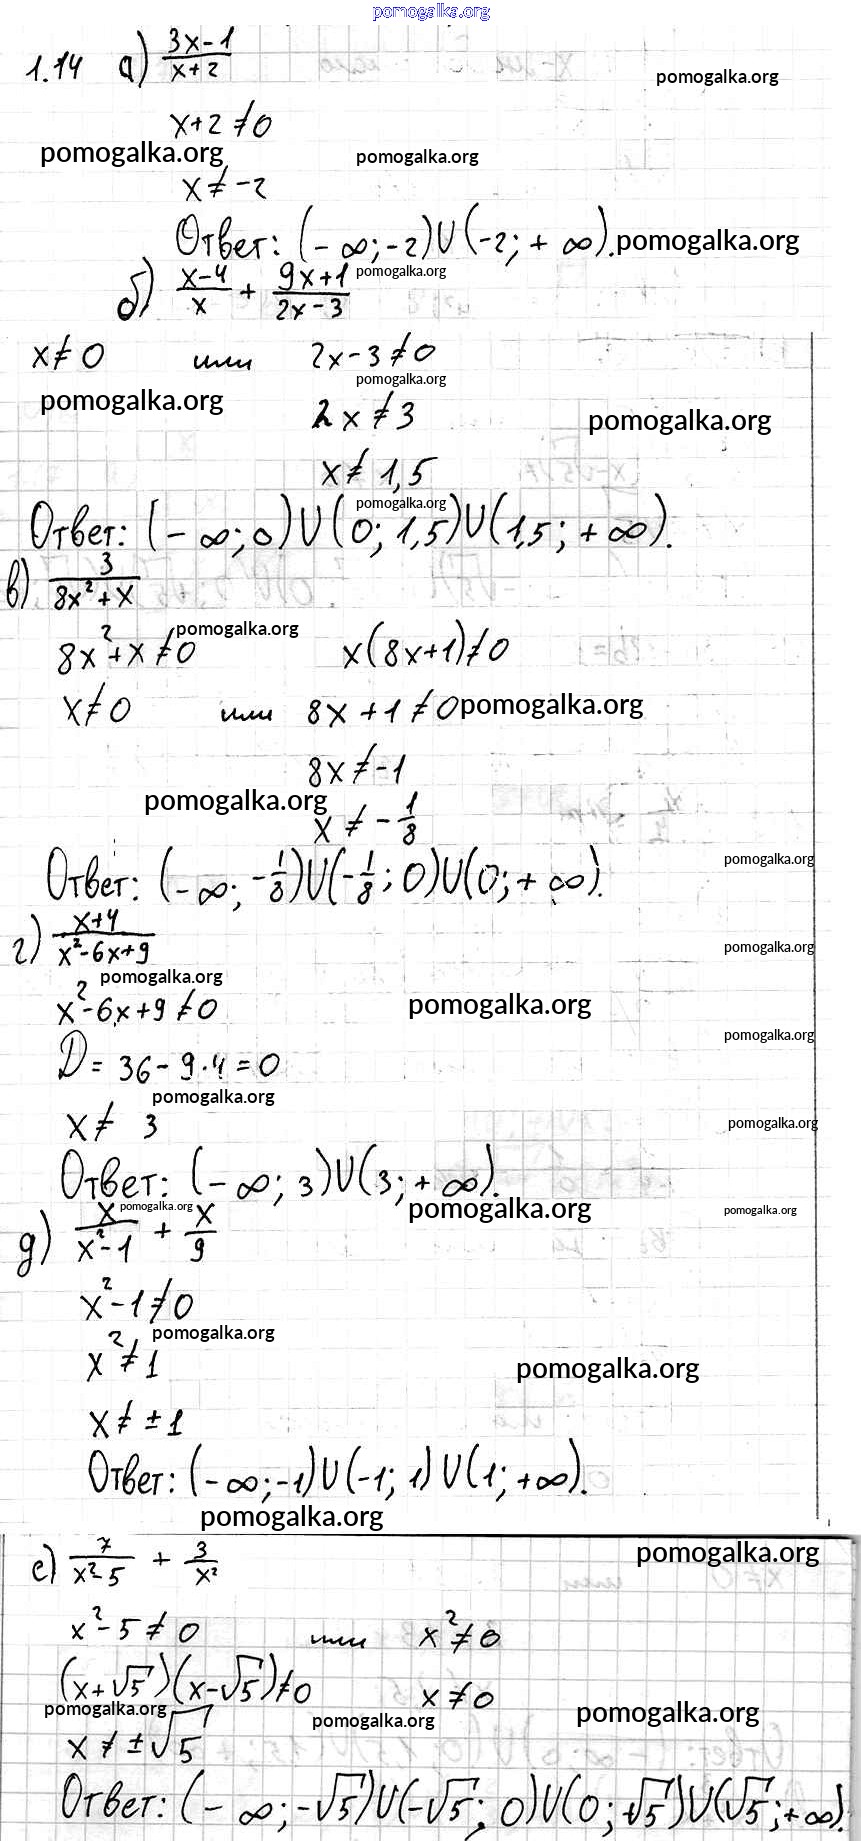 pomogalka.org
1.14 а) (3x-1)/(x+2) pomogalka.org
x+2≠0
pomogalka.org pomogalka.org
x≠-2
Ответ: (-∞;-2)U(-2;+∞). pomogalka.org
б) (x-4)/x + (9x+1)/(2x-3) pomogalka.org
x≠0 или 2x-3≠0
pomogalka.org
pomogalka.org 2x≠3 pomogalka.org
x≠1,5
pomogalka.org
Ответ: (-∞;0)U(0;1,5)U(1,5;+∞).
в) 3/(8x²+x)
pomogalka.org
8x²+x≠0 x(8x+1)≠0
x≠0 или 8x+1≠0 pomogalka.org
8x≠-1
pomogalka.org
x≠-1/8
Ответ: (-∞;-1/8)U(-1/8;0)U(0;+∞). pomogalka.org
г) (x+4)/(x²-6x+9) pomogalka.org
pomogalka.org
x²-6x+9≠0 pomogalka.org
pomogalka.org
D=36-9·4=0
pomogalka.org
x≠ 3 pomogalka.org
Ответ: (-∞;3)U(3;+∞).
pomogalka.org pomogalka.org pomogalka.org
д) x/(x²-1) + x/9
x²-1≠0
pomogalka.org
x²≠1 pomogalka.org
x≠±1
Ответ: (-∞;-1)U(-1;1)U(1;+∞).
pomogalka.org
е) 7/(x²-5) + 3/x² pomogalka.org
x²-5≠0 или x²≠0
(x+√5)(x-√5)≠0 x≠0
pomogalka.org pomogalka.org pomogalka.org
x≠±√5
Ответ: (-∞;-√5)U(-√5;0)U(0;√5)U(√5;+∞).